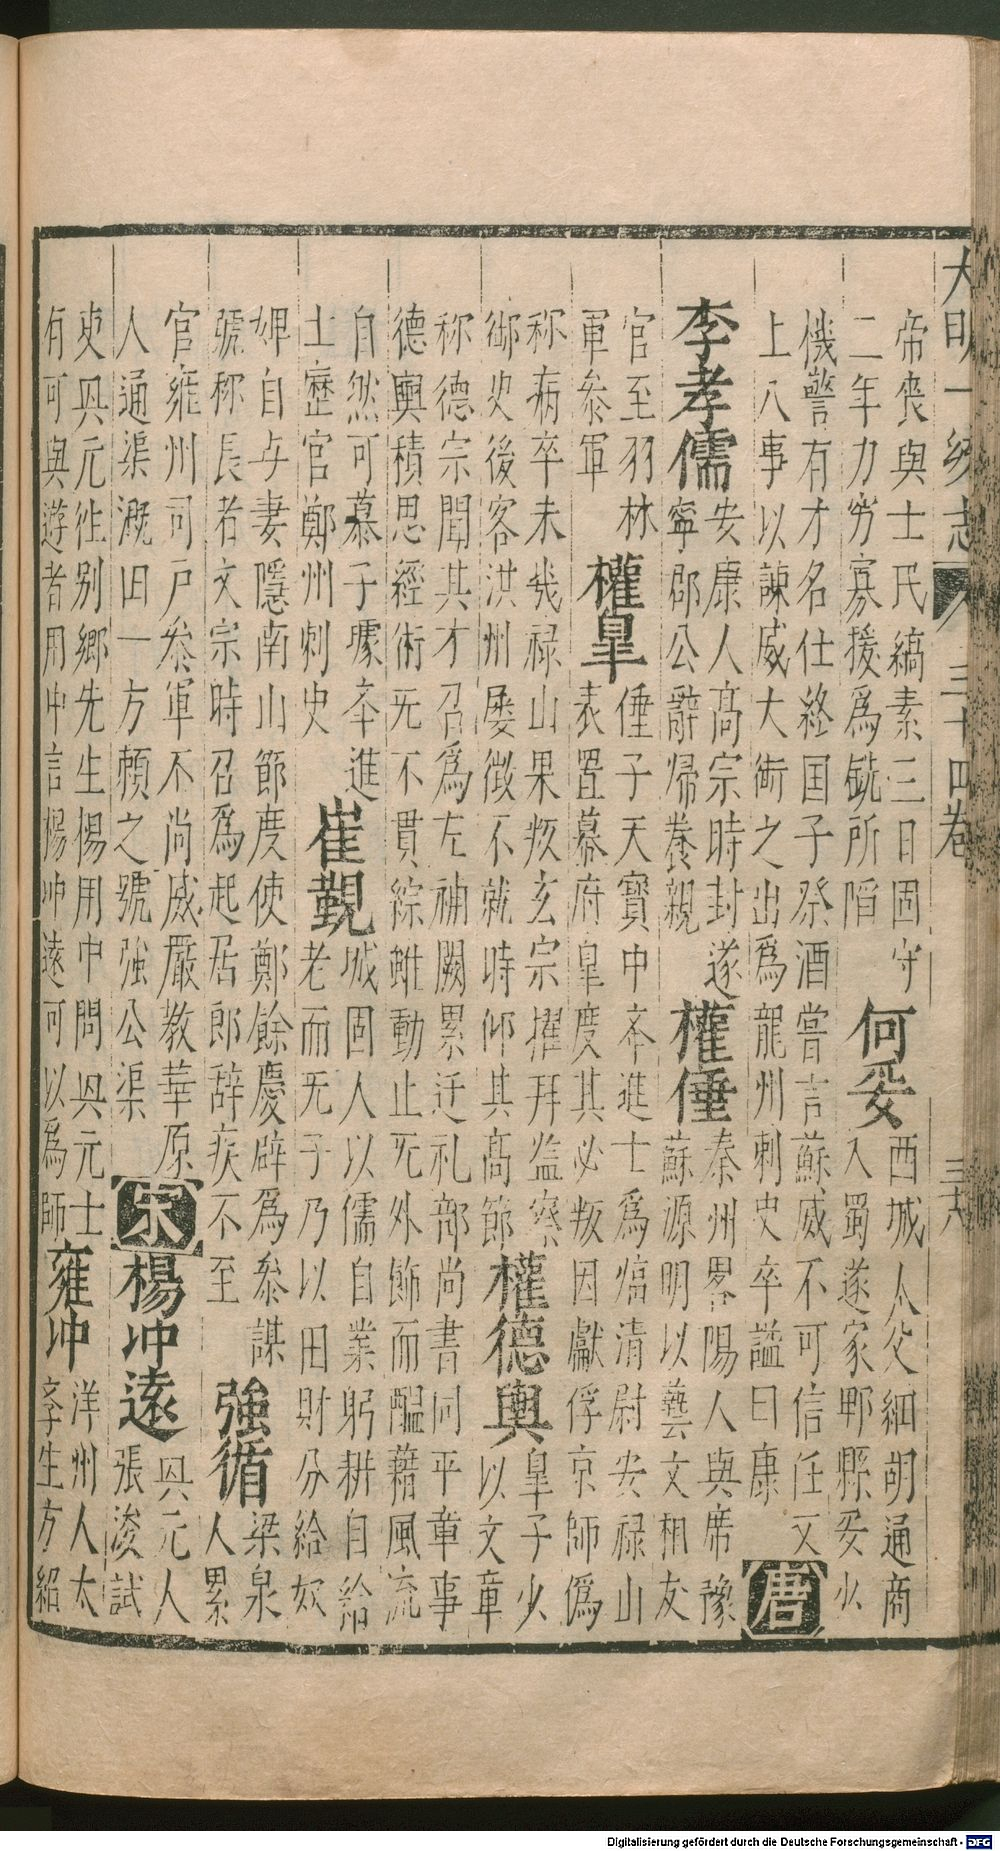 大明一統志 三十四卷 三十八
帝喪與士氏縞素三日固守
二年力穷寡援爲毓所陷
何妥
西城人父細胡通商
入蜀遂家郫縣妥少
機警有才名仕終国子祭酒嘗言蘇威不可信任又
上八事以諫威大銜之出爲龍州刺史卒謚曰康
唐
李孝儒
安康人高宗時封遂
寧郡公辭歸養親
權倕
秦州畧陽人與席豫
蘇源明以藝文相友
官至羽林
軍叅軍
權皐
倕子天寶中夲進士爲熇清尉安禄山
表置幕府皐度其必叛因獻俘京師僞
称病卒未幾禄山果叛玄宗擢拜监察
御史後客洪州屡徴不就時仰其高節
權德輿
皐子少
以文章
称德宗聞其才召爲左補闕累迁礼部尚書同平章事
德輿積思經術无不貫綜雖動止无外飾而醖藉風流
自然可慕子璩夲進
士歷官鄭州刺史
崔覲
城固人以儒自業躬耕自给
老而无子乃以田財分給奴
婢自与妻隱南山節度使鄭餘慶辟爲叅謀
號称長者文宗時召爲起居郎辞疾不至
強循
梁泉
人累
官雍州司戶叅軍不尚威嚴教華原
人通渠溉旧一方賴之號強公渠
宋
楊冲遠
兴元人
張浚試
吏兴元徃别鄉先生楊用中問兴元士
有可與遊者用中言楊冲遠可以爲師
雍冲
洋州人太
李生方紹
Digitalisierung gefördert durch die Deutsche Forschungsgemeinschaft - DFG